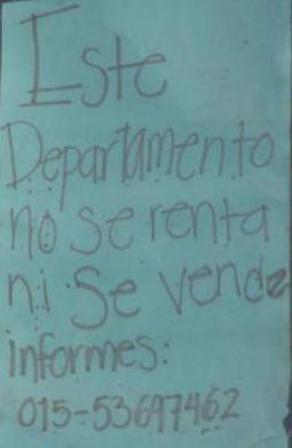 Este
Departamento
no se renta
ni Se vende
informes:
015-53697462